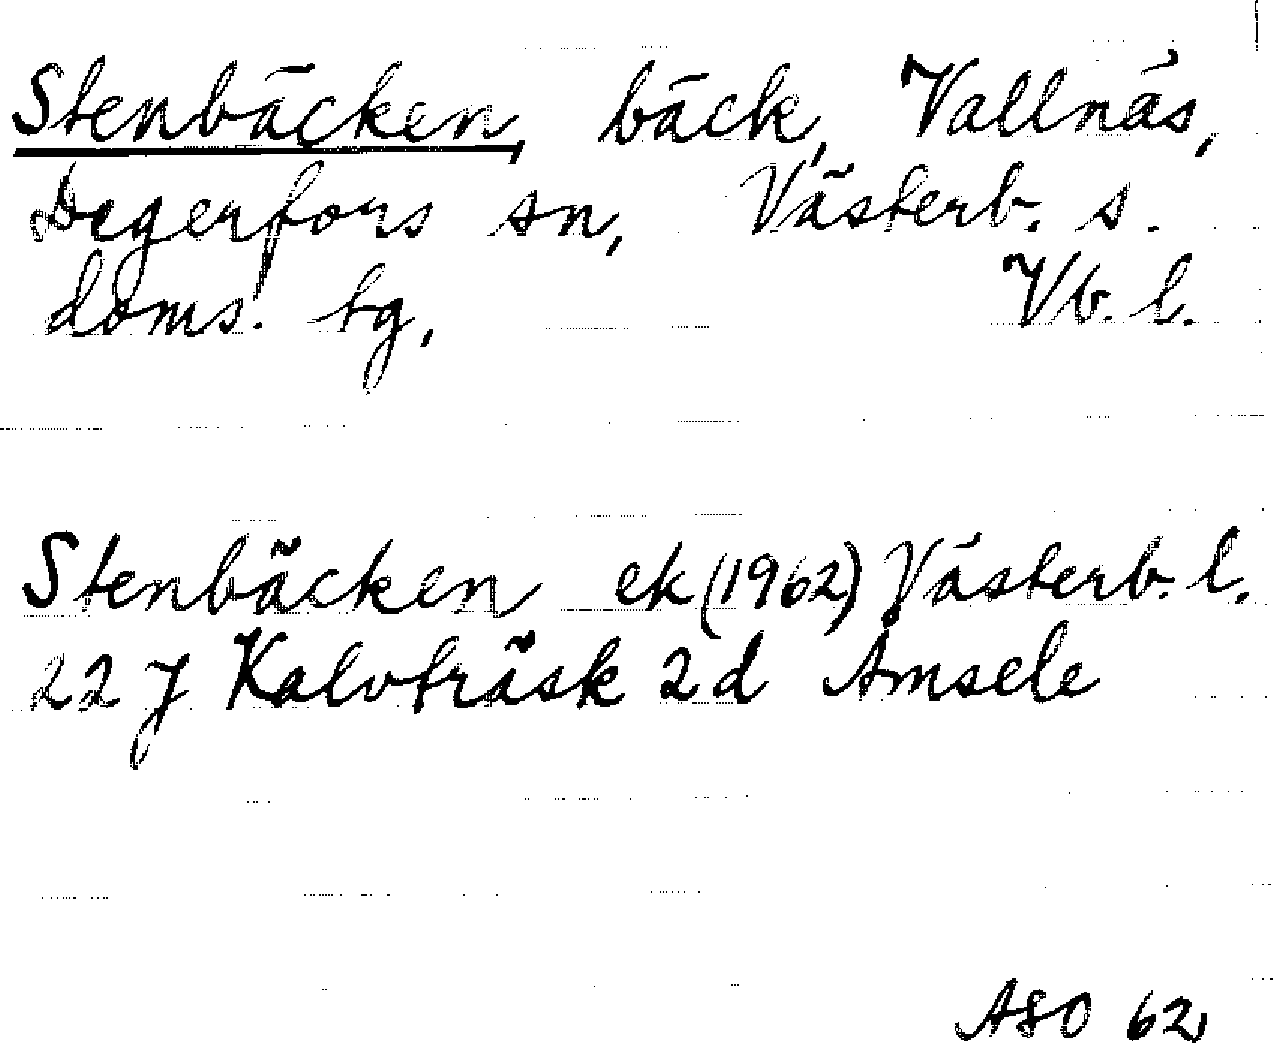 Stenbäcken, bäck, Vallnäs,
Degerfors sn, Västerb. s.
doms. tg, Vb. l.
Stenbäcken ek (1962) Västerb. l.
22 J Kalvträsk 2 d Åmsele
ASO 62